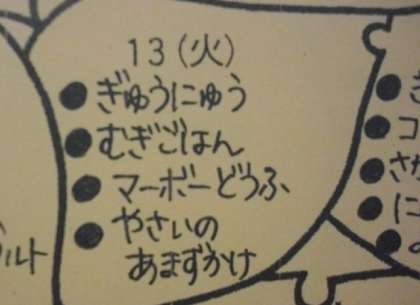 13(火)
●ぎゅうにゅう
●むぎごはん
●マーボーどうふ
●やさいの
あまずかけ
ルト
●
●コ
さか
●に
●